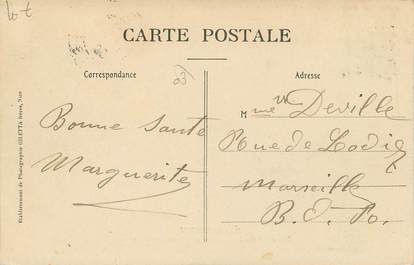 Lot
CARTE POSTALE
Correspondance
Adresse
Bonne Santé
Marguerite
Mme Vve Deville
Rue de Lodi
Marseille
B. d. R.
Etablissement de Photographie GILETTA frères, Nice